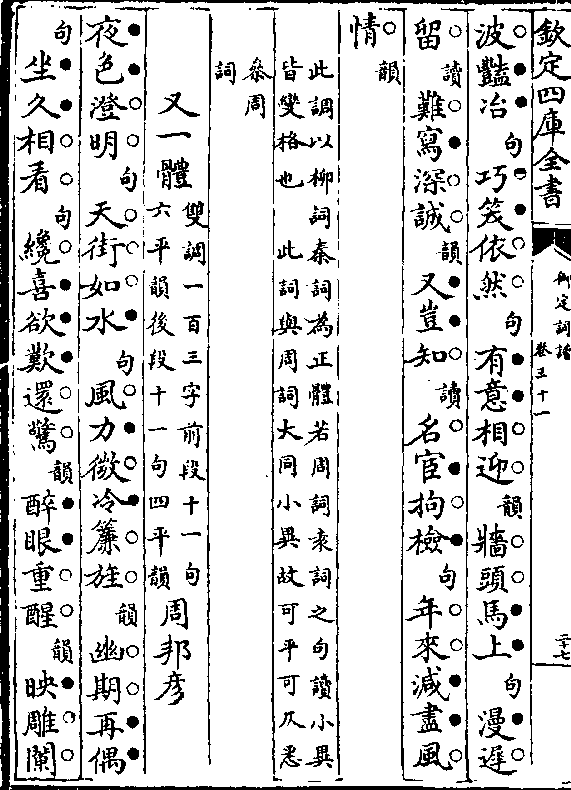 欽定四庫全書
御定詞譜
卷三十一
二十七
波豔冶句巧笑依然句有意相迎韻牆頭馬上句漫遲
留讀難寫深誠韻又豈知讀名宦拘檢句年來減盡風
情韻
此調以柳詞秦詞為正體若周詞袁詞之句讀小異
皆變格也　此詞與周詞大同小異故可平可仄悉
叅周
詞
又一體雙調一百三字前段十一句
六平韻後段十一句四平韻周邦彥
夜色澄明句天街如水句風力微冷簾旌韻幽期再偶
句坐久相看句纔喜欲歎還驚韻醉眼重醒韻映雕闌